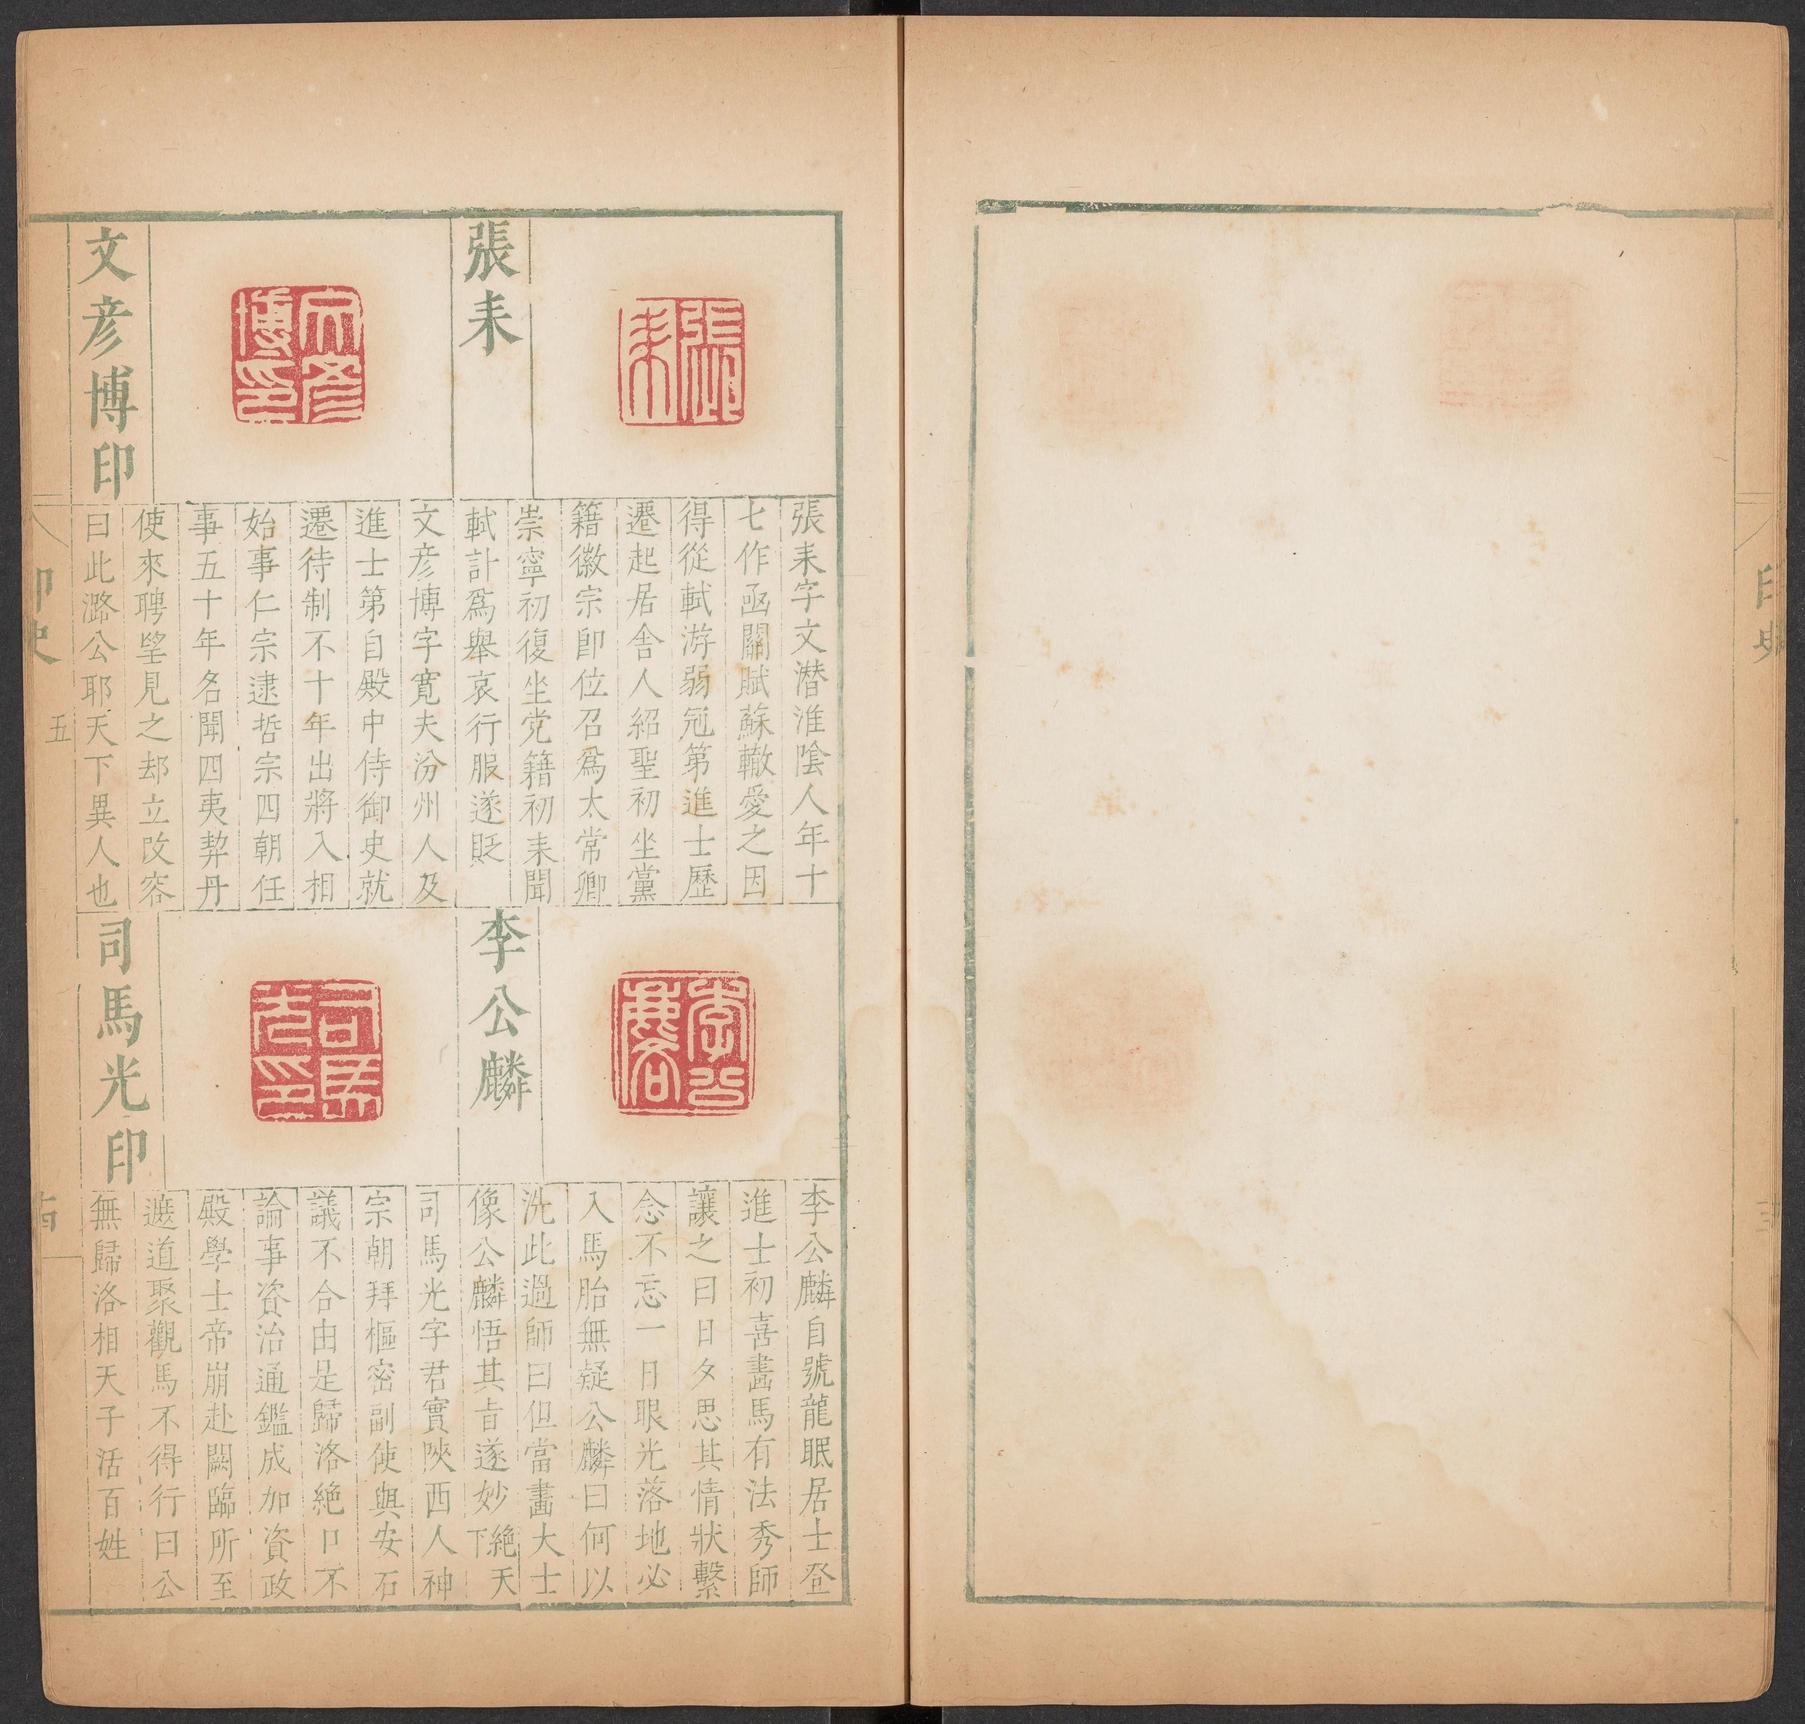 張耒
張耒字文潛淮陰人年十
七作函關賦蘇轍愛之因
得從軾游弱冠第進士歷
遷起居舍人紹聖初坐黨
籍徽宗卽位召爲太常卿
崇寧初復坐党籍初耒聞
軾訃爲舉哀行服遂貶
文彥博印
文彥博字寬夫汾州人及
進士第自殿中侍御史就
遷待制不十年出將入相
始事仁宗逮哲宗四朝任
事五十年名聞四夷契丹
使來聘望見之却立改容
曰此潞公耶天下異人也
李公麟
李公麟自號龍眠居士登
進士初喜畵馬有法秀師
讓之曰日夕思其情狀繫
念不忘一日眼光落地必
入馬胎無疑公麟曰何以
洗此過師曰但當畵大士
像公麟悟其旨遂妙絶天下
司馬光印
司馬光字君實陝西人神
宗朝拜樞密副使與安石
議不合由是歸洛絶口不
論事資治通鑑成加資政
殿學士帝崩赴闕臨所至
遮道聚觀馬不得行曰公
無歸洛相天子活百姓
印史
五